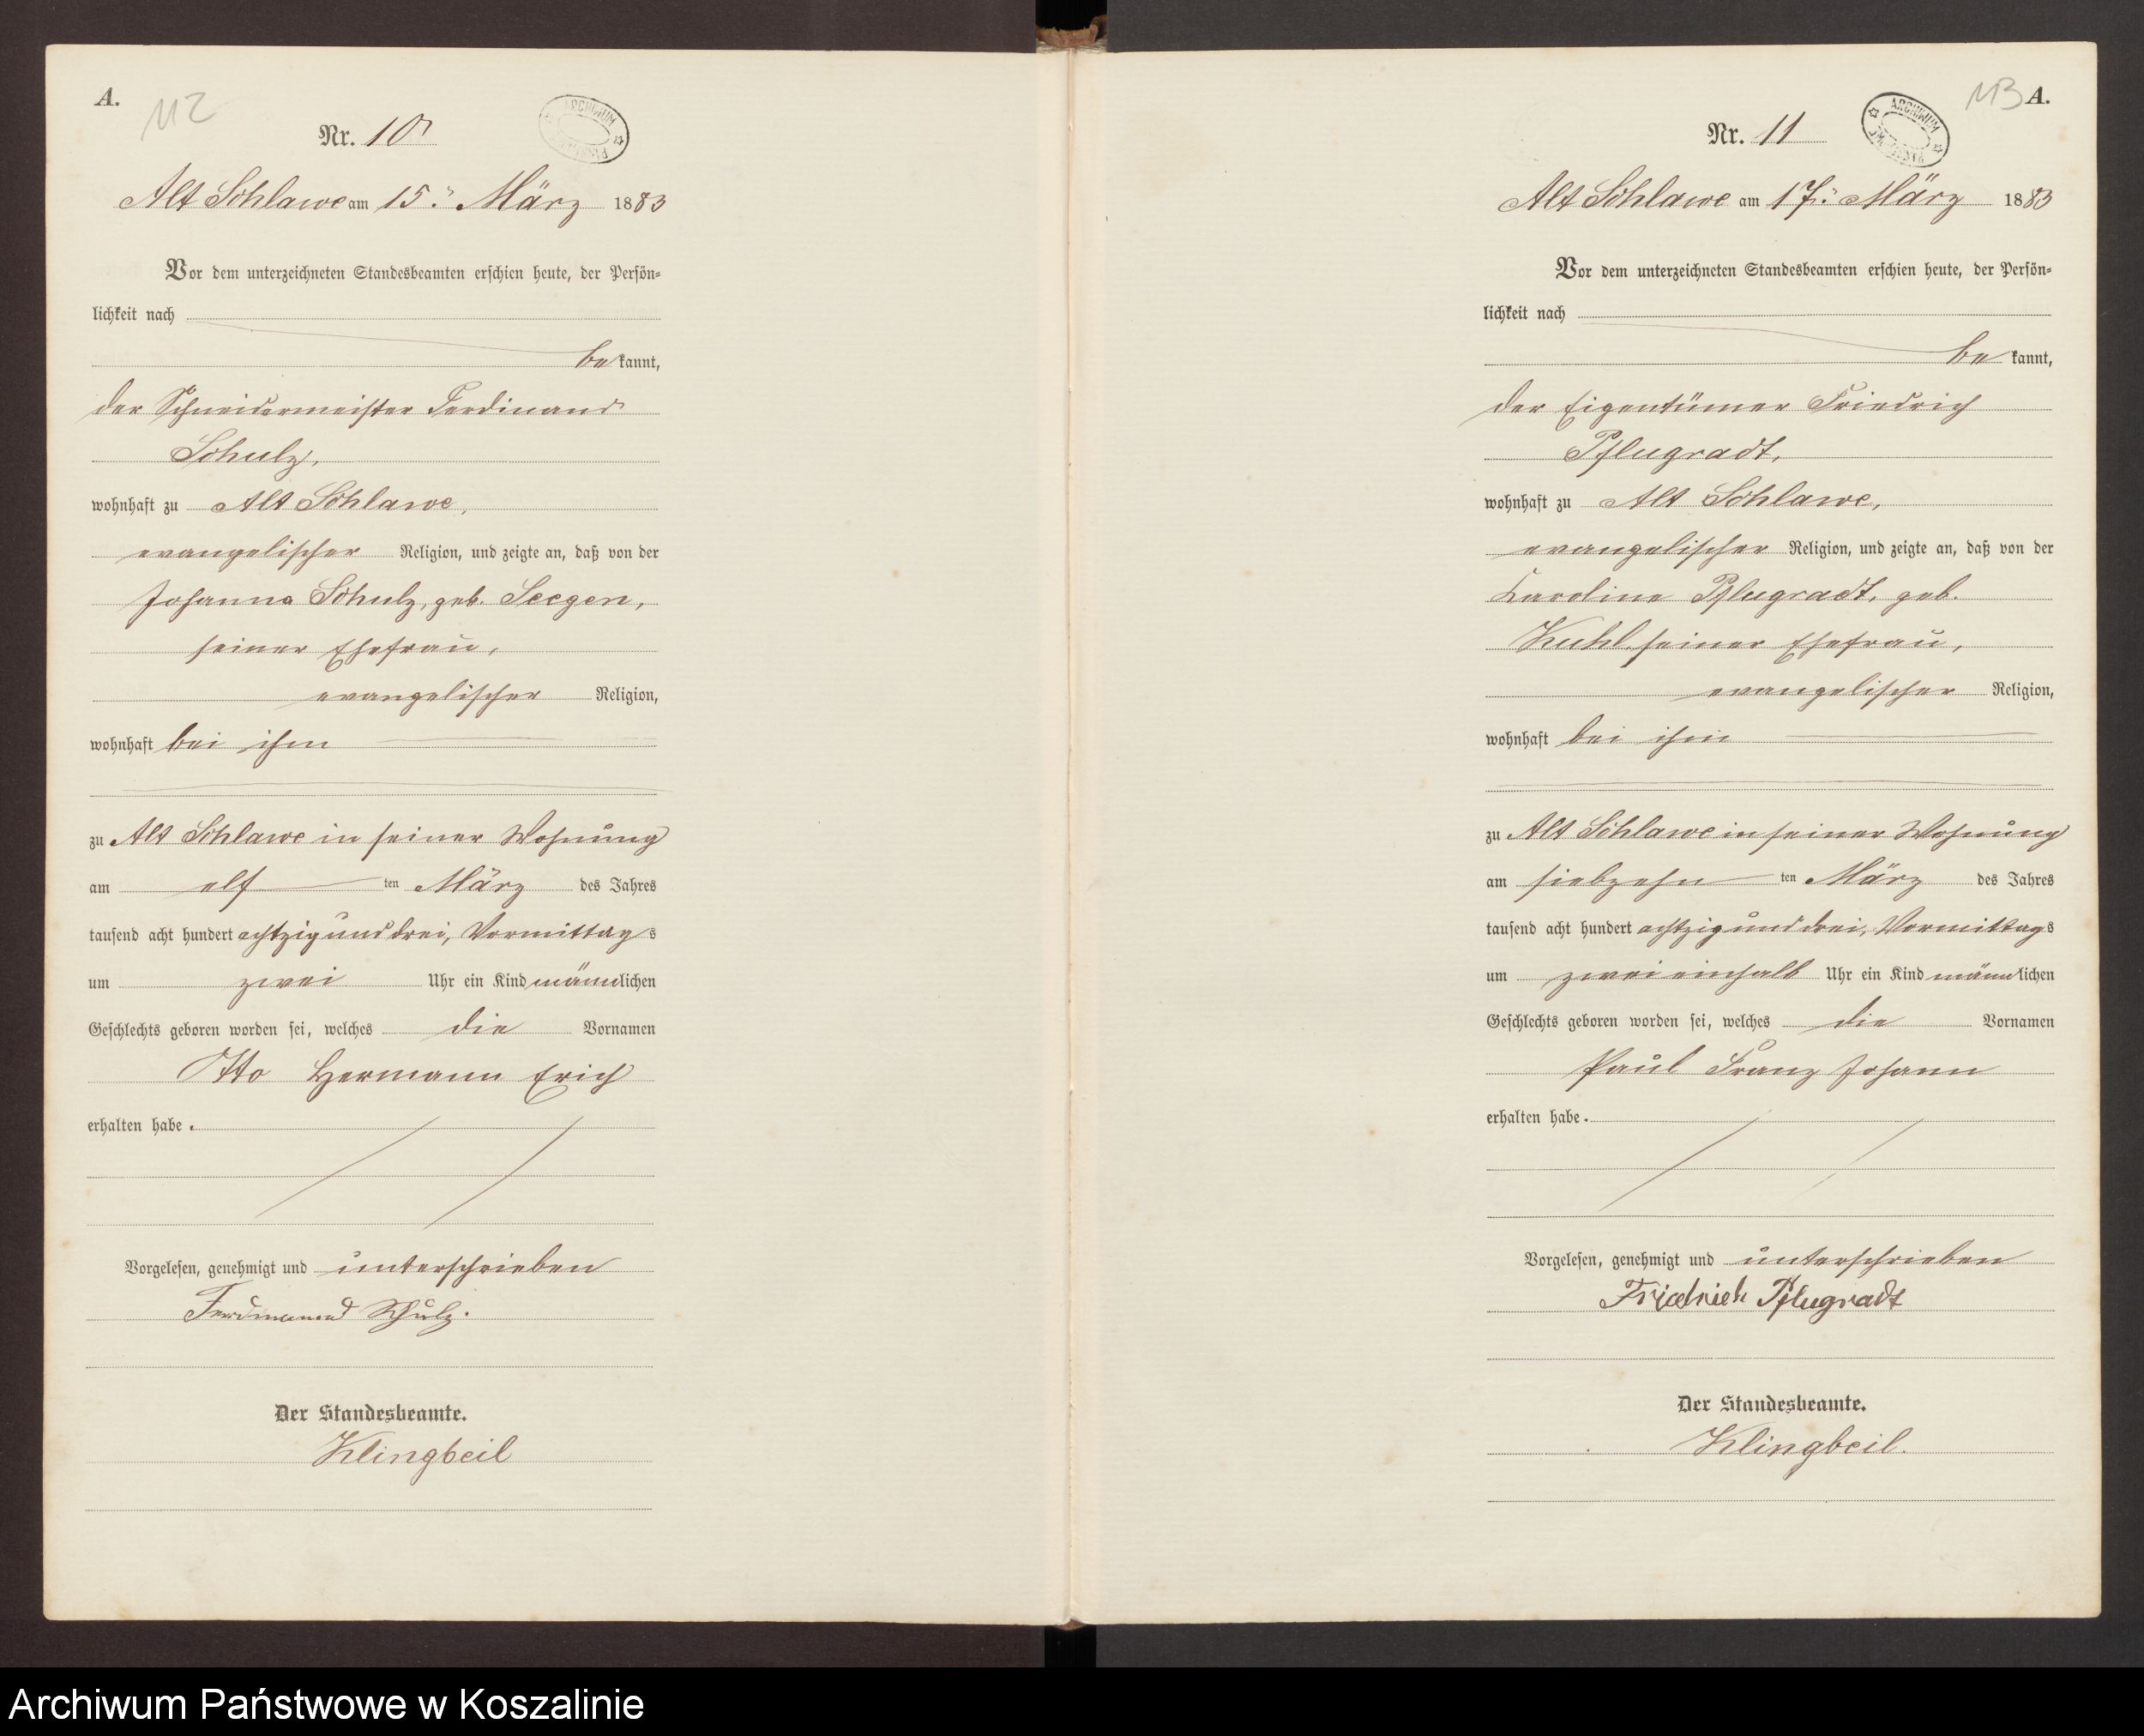 A.
112
Nr. 10
ARCHIWUM
Alt Schlawe am 15. März 1883
Vor dem unterzeichneten Standesbeamten erschien heute, der Persön-
lichkeit nach
bekannt,
der Schneidermeister Ferdinand
Schulz,
wohnhaft zu Alt Schlawe,
evangelischer Religion, und zeigte an, daß von der
Johanna Schulz, geb. Seegen,
seiner Ehefrau,
evangelischer Religion,
wohnhaft bei ihm
zu Alt Schlawe in seiner Wohnung
am elf ten März des Jahres
tausend acht hundert achtzig und drei, Vormittags
um zwei Uhr ein Kind männlichen
Geschlechts geboren worden sei, welches die Vornamen
Otto Hermann Erich
erhalten habe.
Vorgelesen, genehmigt und unterschrieben
Ferdinand Schulz.
Der Standesbeamte.
Klingbeil
113 A.
Nr. 11
ARCHIWUM
Alt Schlawe am 17. März 1883
Vor dem unterzeichneten Standesbeamten erschien heute, der Persön-
lichkeit nach
bekannt,
der Eigentümer Friedrich
Pflugradt,
wohnhaft zu Alt Schlawe,
evangelischer Religion, und zeigte an, daß von der
Karoline Pflugradt, geb.
Kuhl, seiner Ehefrau,
evangelischer Religion,
wohnhaft bei ihm
zu Alt Schlawe in seiner Wohnung
am siebzehn ten März des Jahres
tausend acht hundert achtzig und drei, Vormittags
um zwei einhalb Uhr ein Kind männlichen
Geschlechts geboren worden sei, welches die Vornamen
Paul Franz Johann
erhalten habe.
Vorgelesen, genehmigt und unterschrieben
Friedrich Pflugradt
Der Standesbeamte.
Klingbeil.
Archiwum Państwowe w Koszalinie